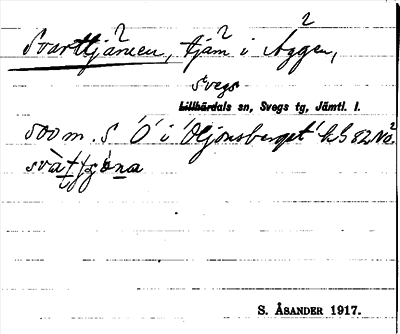 Svarttjärnen, tjärn i Äggen,
Svegs
Lillhärdals sn, Svegs tg, Jämtl. l.
500 m. S 'O' i 'Oljonsberget' k.S 82 NO.
S. ÅSANDER 1917.